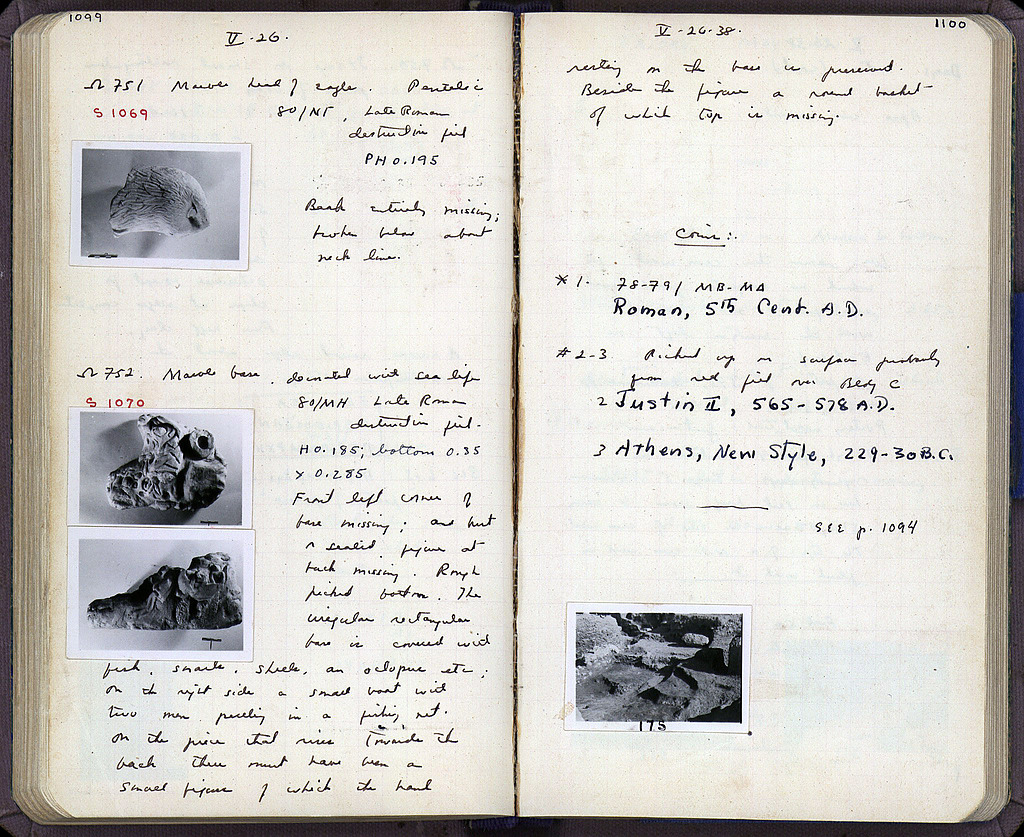 1099
V-26.
Ω 751 Marble head of eagle. Pentelic
S 1069
80/ΝΓ, Late Roman
destruction fill
PH 0.195
Beak entirely missing;
broken below about
neck line.
Ω 752. Marble base, decorated with sea life
S 1070
80/ΜΗ Late Roman
destruction fill.
H 0.185; bottom 0.35
x 0.285
Front left corner of
base missing; and part
seated figure at
back missing. Rough
picked bottom. The
irregular rectangular
base is covered with
fish, snails, shells, an octopus etc;
on the right side a small boat with
two men pulling in a fishing net.
On the piece that rises towards the
back there must have been a
small figure of which the hand
1100
V-26-38.
resting on the base is preserved.
Beside the figure a round basket
of which top is missing.
Coins:
*1. 78-79/ΜΒ-ΜΔ
Roman, 5th Cent. A.D.
#2-3. Picked up on surface probably
from red fill over Bldg C
2 Justin II, 565-578 A.D.
3 Athens, New Style, 229-30 B.C.
SEE p. 1094
175